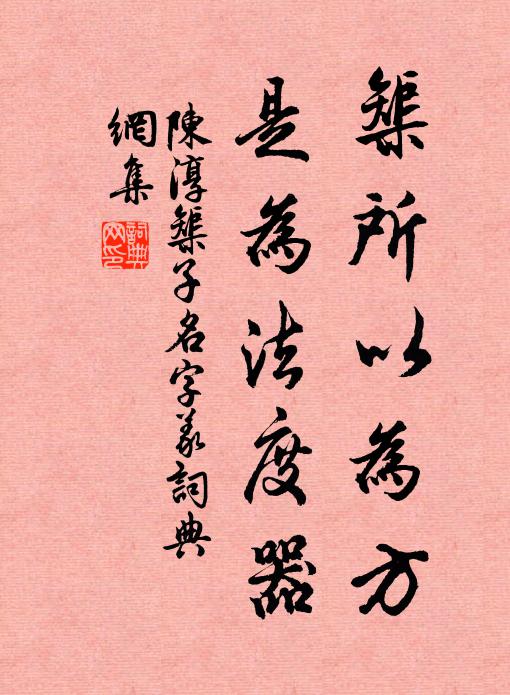 榘所以為方
是為法度器
陳淳榘子名字義詞典
網集
詞典
网印